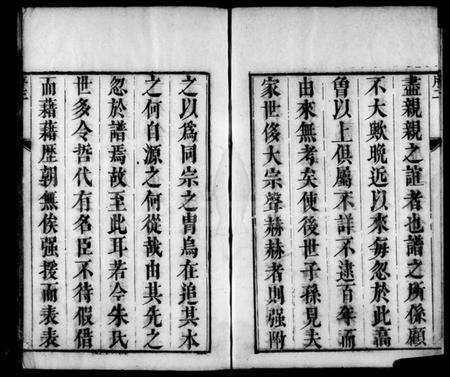 盡親親之誼者也譜之所係顧
不大歟晚近以來每忽於此高
曾以上俱屬不詳不逮百年而
由來無考矣使後世子孫見夫
家世後大宗聲赫赫者則强附
之以爲同宗之胄烏在追其本
之何自源之何從哉由其先之
忽於譜焉故至此耳若令朱氏
世多令哲代有名臣不待假借
而藉藉歷朝無俟强援而表表